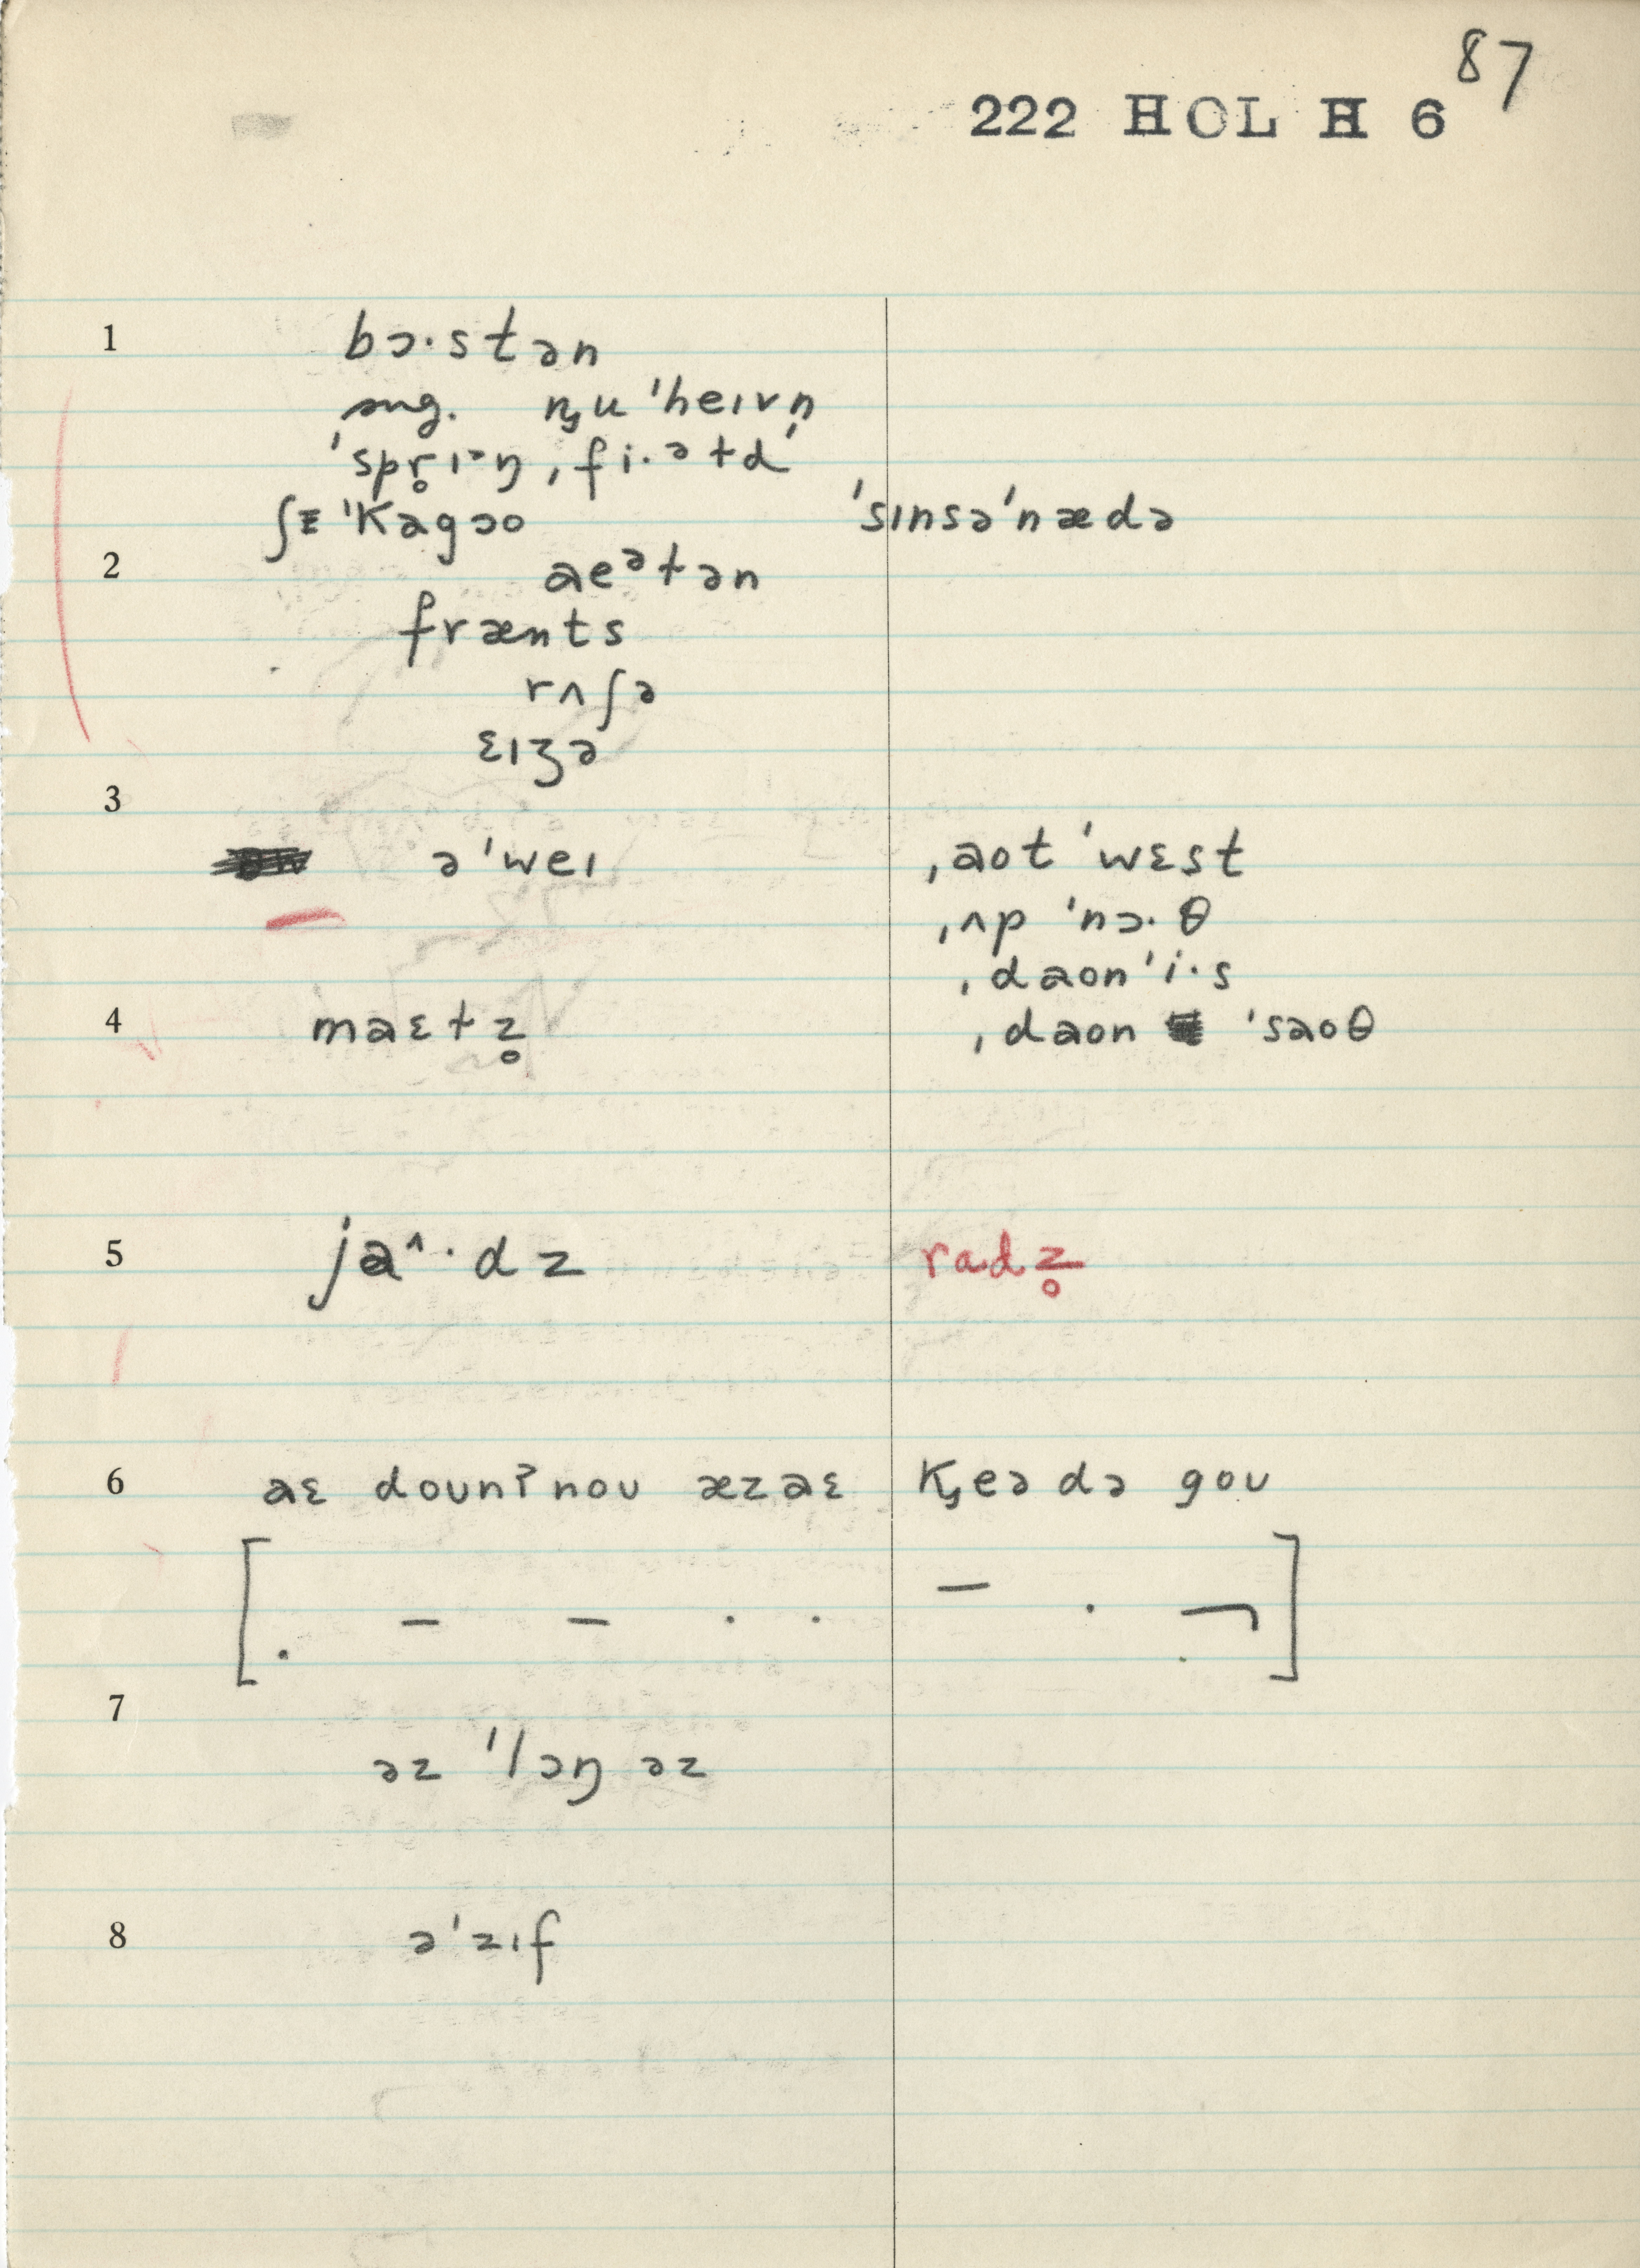 87
222 HOL H 6
1 bɔ·stən
sug. n̡u ˈheɪvn̩
ˈspr̥ɪᵊŋ ˌfi·ᵊɫdˈ
ʃɪˈkagɔo ˈsɪnsəˈnædə
2 aeᵊɫən
frænts
rʌʃə
ɛɪʒə
3
əˈweɪ ˌaot ˈwɛst
ˌʌp ˈnɔ·θ
ˌdaonˈi·s
4 maɛɫz̥ ˌdaon ˈsaoθ
5 jaᶺ·dz radz̥
6 aɛ dounʔnou æzaɛ k̡eə də gou
[. – – . . – . ¬]
7
əz ˈlɔŋ əz
8 əˈzɪf